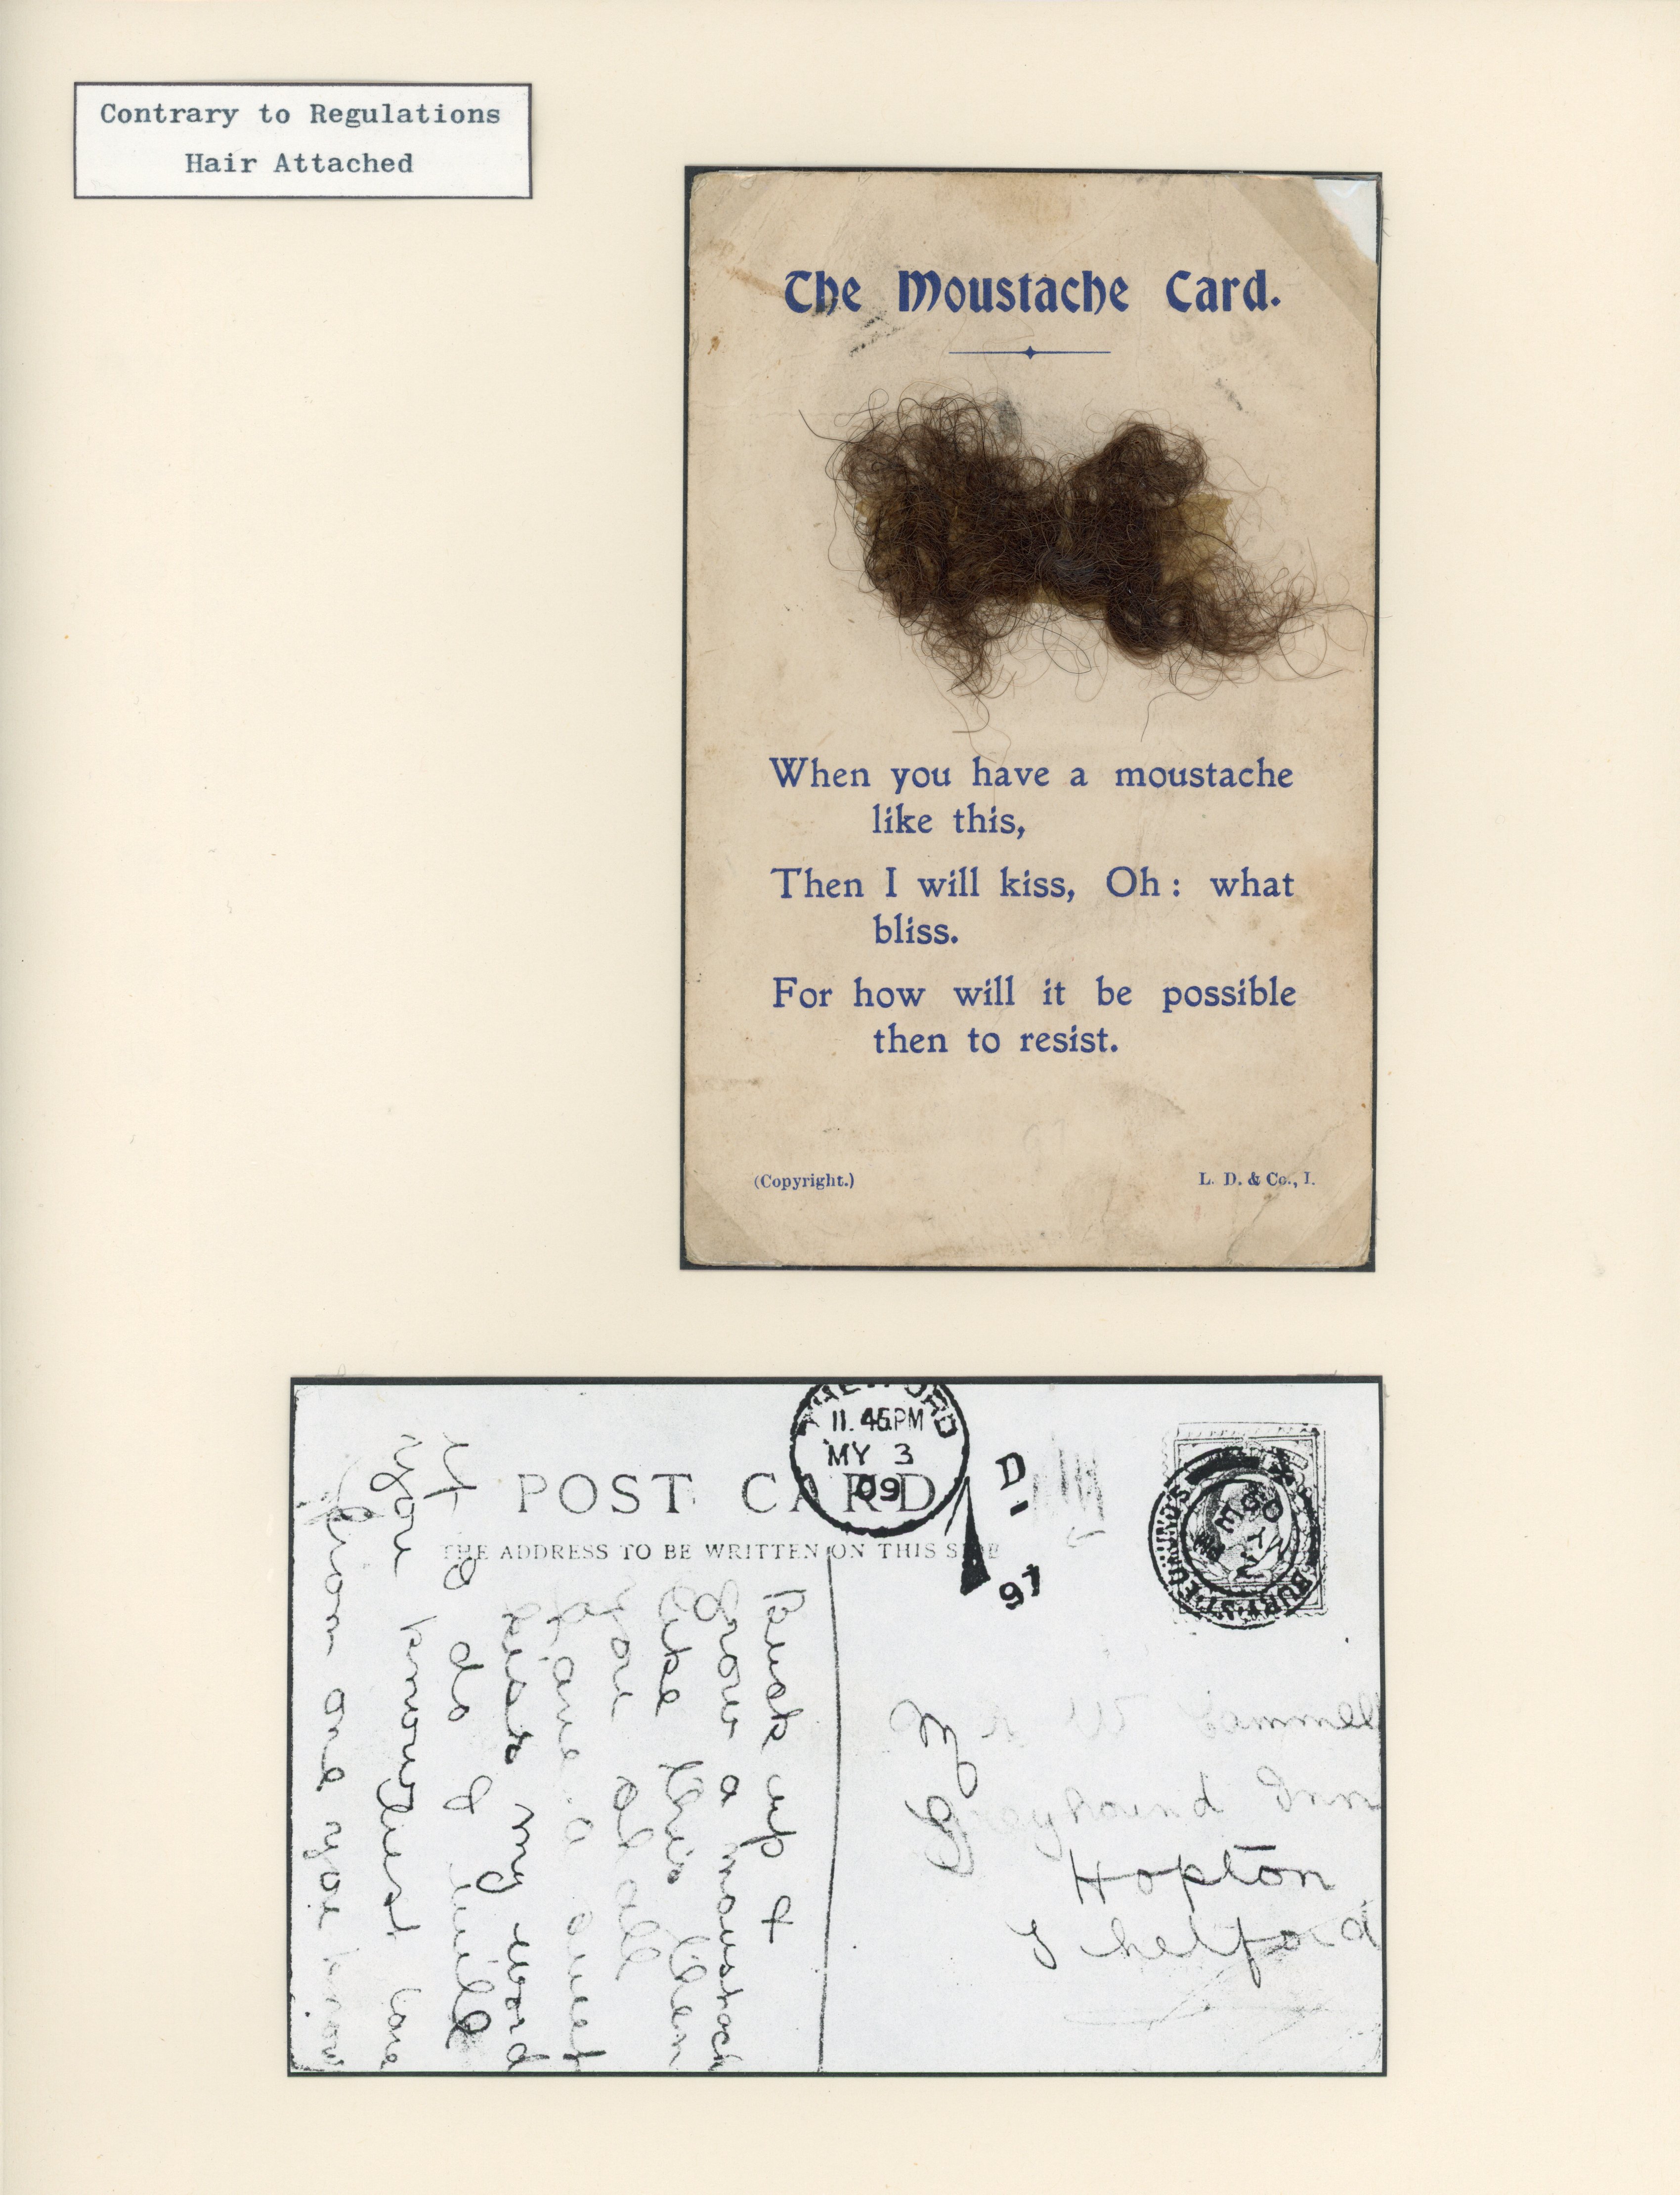 Contrary to Regulations
Hair Attached
The Moustache Card.
When you have a moustache
like this,
Then I will kiss, Oh: what
bliss.
For how will it be possible
then to resist.
(Copyright.)
L. D. & Co., I.
POST CARD
THE ADDRESS TO BE WRITTEN ON THIS SIDE
THETFORD
11.45PM
MY 3
09
D
97
BURY ST EDMUNDS
MY 3
09
Buck up &
grow a moustach
like this then
you all
have a sweet
kiss my word
& do I will
it
you knowlest love
from one you know
W Lammell
Greyhound Inn
Hopton
Thetford